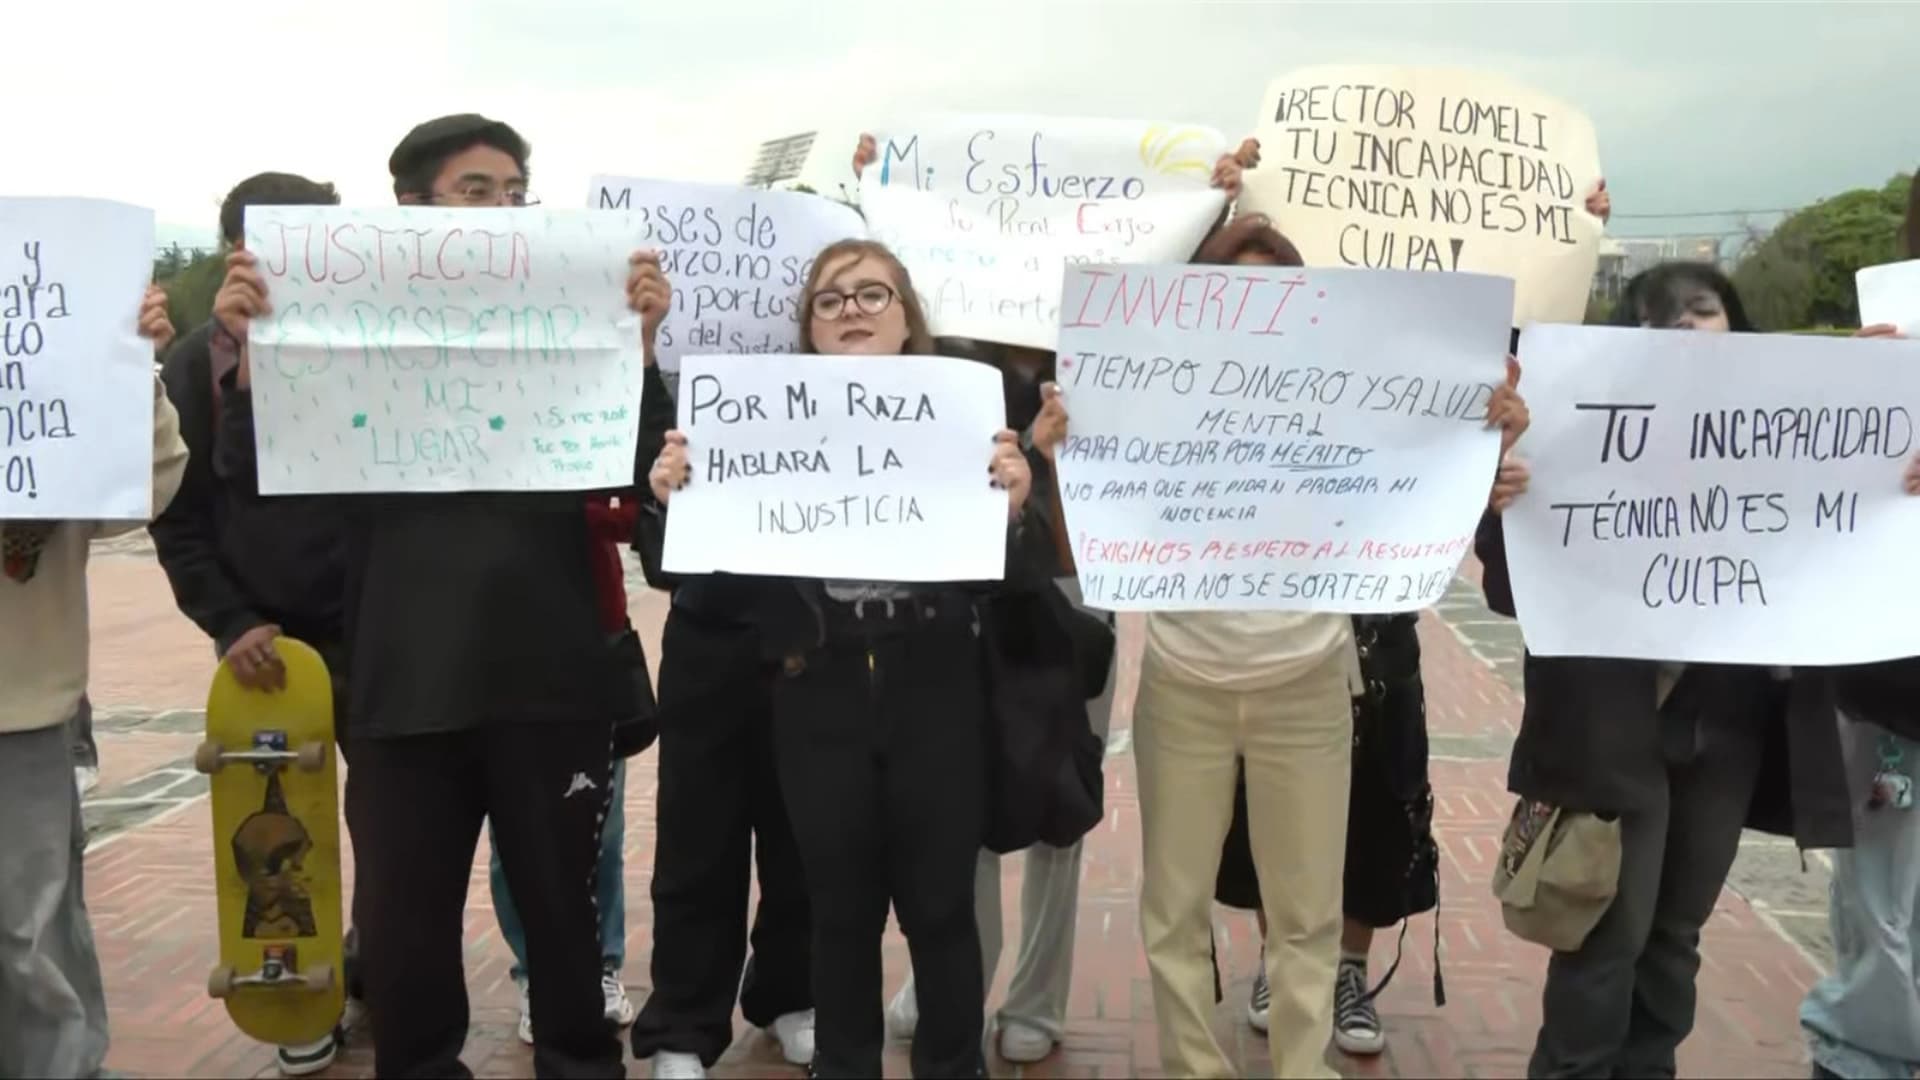 y
ara
to
an
ncia
o!
JUSTICIA
ES RESPETAR
MI
LUGAR
Si me quedé
fue por
Propio
Meses de
erzo, no se
n por tus
s del Siste
Mi Esfuerzo
fu Real Exijo
a mis
¡RECTOR LOMELI
TU INCAPACIDAD
TECNICA NO ES MI
CULPA!
POR MI RAZA
HABLARÁ LA
INJUSTICIA
INVERTÍ:
TIEMPO DINERO Y SALUD
MENTAL
PARA QUEDAR POR MÉRITO
NO PARA QUE ME PIDAN PROBAR MI
INOCENCIA
EXIGIMOS RESPETO AL RESULTADO
MI LUGAR NO SE SORTEA 2 VEC
TU INCAPACIDAD
TÉCNICA NO ES MI
CULPA